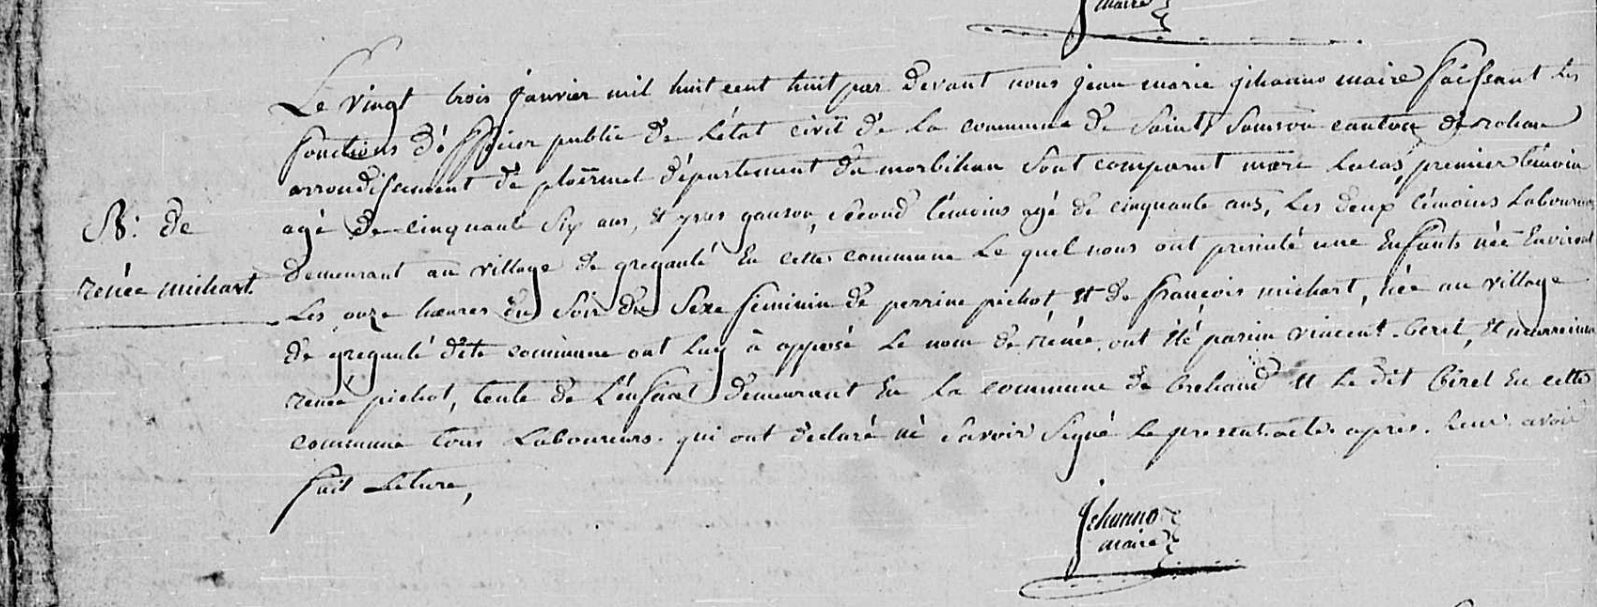 maire
Le vingt trois janvier mil huit cent huit par devant nous jean marie jehanno maire faissant les
fonctions d'officier public de L'état civil de La commune de Saint Samson canton de rohan
arrondissement de ploërmel département du morbihan Sont comparut marc Lucas, premier témoin
agé de cinquante Six ans, et yves ganson, second témoins agé de cinquante ans, Les deux témoins Laboureurs
Demeurant au village de gregauté En cette commune Le quel nous ont presenté une Enfants née Environt
Les onze heures du Soir du Sexe feminin de perrine pichot et de françois michart, née au village
de gregauté dite commune ont Luy à apposé Le nom de rénée, ont été parin vincent et marreine
renée pichot, tente de L'enfant demeurant En La commune de brehand et Le dit En cette
commune tous Laboureurs. qui ont declaré né Savoir Signé Le present acte. apres. Leur avoir
fait Leture,
N: de
renée michart.
jehanno
maire